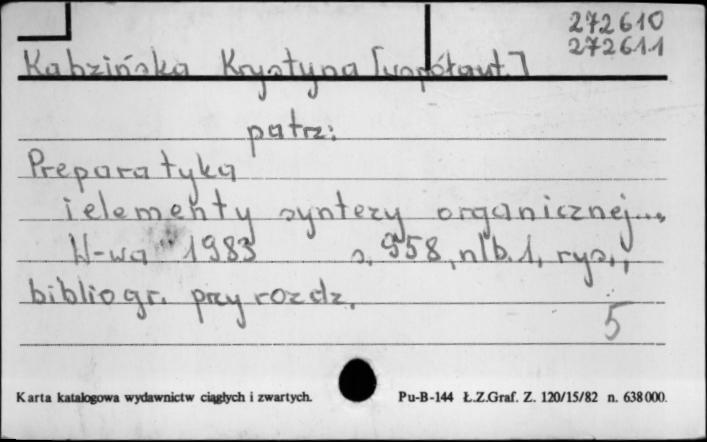 272610
272611
Kabzińska Krystyna [współaut.]
patrz:
Preparatyka
i elementy syntezy organicznej...,
W-wa 1983 s. 958, nlb. 1, rys.,
bibliogr. przy rozdz.
5
Karta katalogowa wydawnictw ciągłych i zwartych.
Pu-B-144 Ł.Z.Graf. Z. 120/15/82 n. 638000.